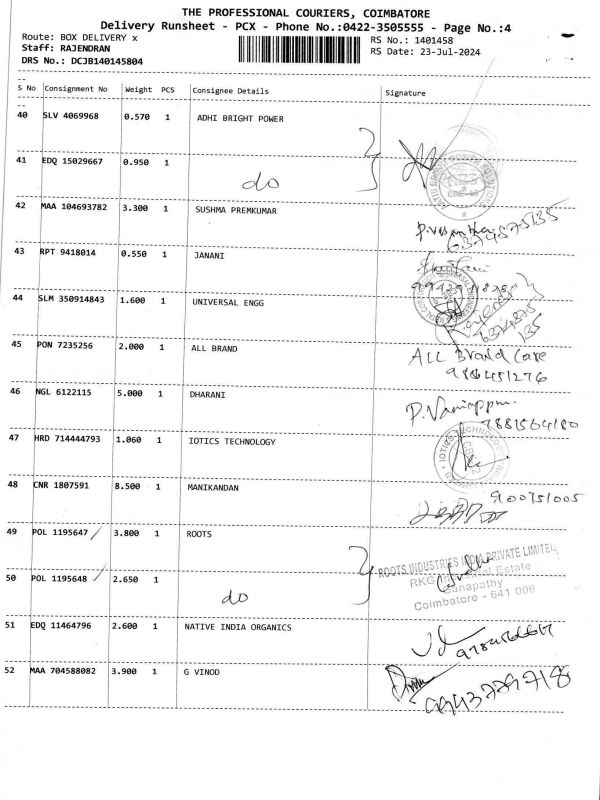 THE PROFESSIONAL COURIERS, COIMBATORE
Delivery Runsheet - PCX - Phone No.:0422-3505555 - Page No.:4
Route: BOX DELIVERY x RS No.: 1401458
Staff: RAJENDRAN RS Date: 23-Jul-2024
DRS No.: DCJB140145804
S No Consignment No Weight PCS Consignee Details Signature
40 SLV 4069968 0.570 1 ADHI BRIGHT POWER
41 EDQ 15029667 0.950 1 do
42 MAA 104693782 3.300 1 SUSHMA PREMKUMAR
6374575135
43 RPT 9418014 0.550 1 JANANI
44 SLM 350914843 1.600 1 UNIVERSAL ENGG
45 PON 7235256 2.000 1 ALL BRAND ALL Brand Care
46 NGL 6122115 5.000 1 DHARANI
7881564180
47 HRD 714444793 1.060 1 IOTICS TECHNOLOGY
48 CNR 1807591 8.500 1 MANIKANDAN
900751005
49 POL 1195647 / 3.800 1 ROOTS
ROOTS INDUSTRIES INDIA PRIVATE LIMITED
RKG Industrial Estate
50 POL 1195648 / 2.650 1 do Ganapathy
Coimbatore - 641 006
51 EDQ 11464796 2.600 1 NATIVE INDIA ORGANICS
52 MAA 704588082 3.900 1 G VINOD
9943779718